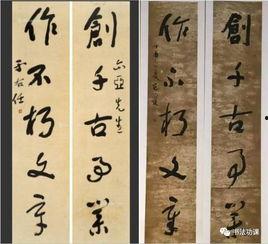 創千古事業
亞先生
作不朽文章
于右任
創千古事業
作不朽文章
书法功课